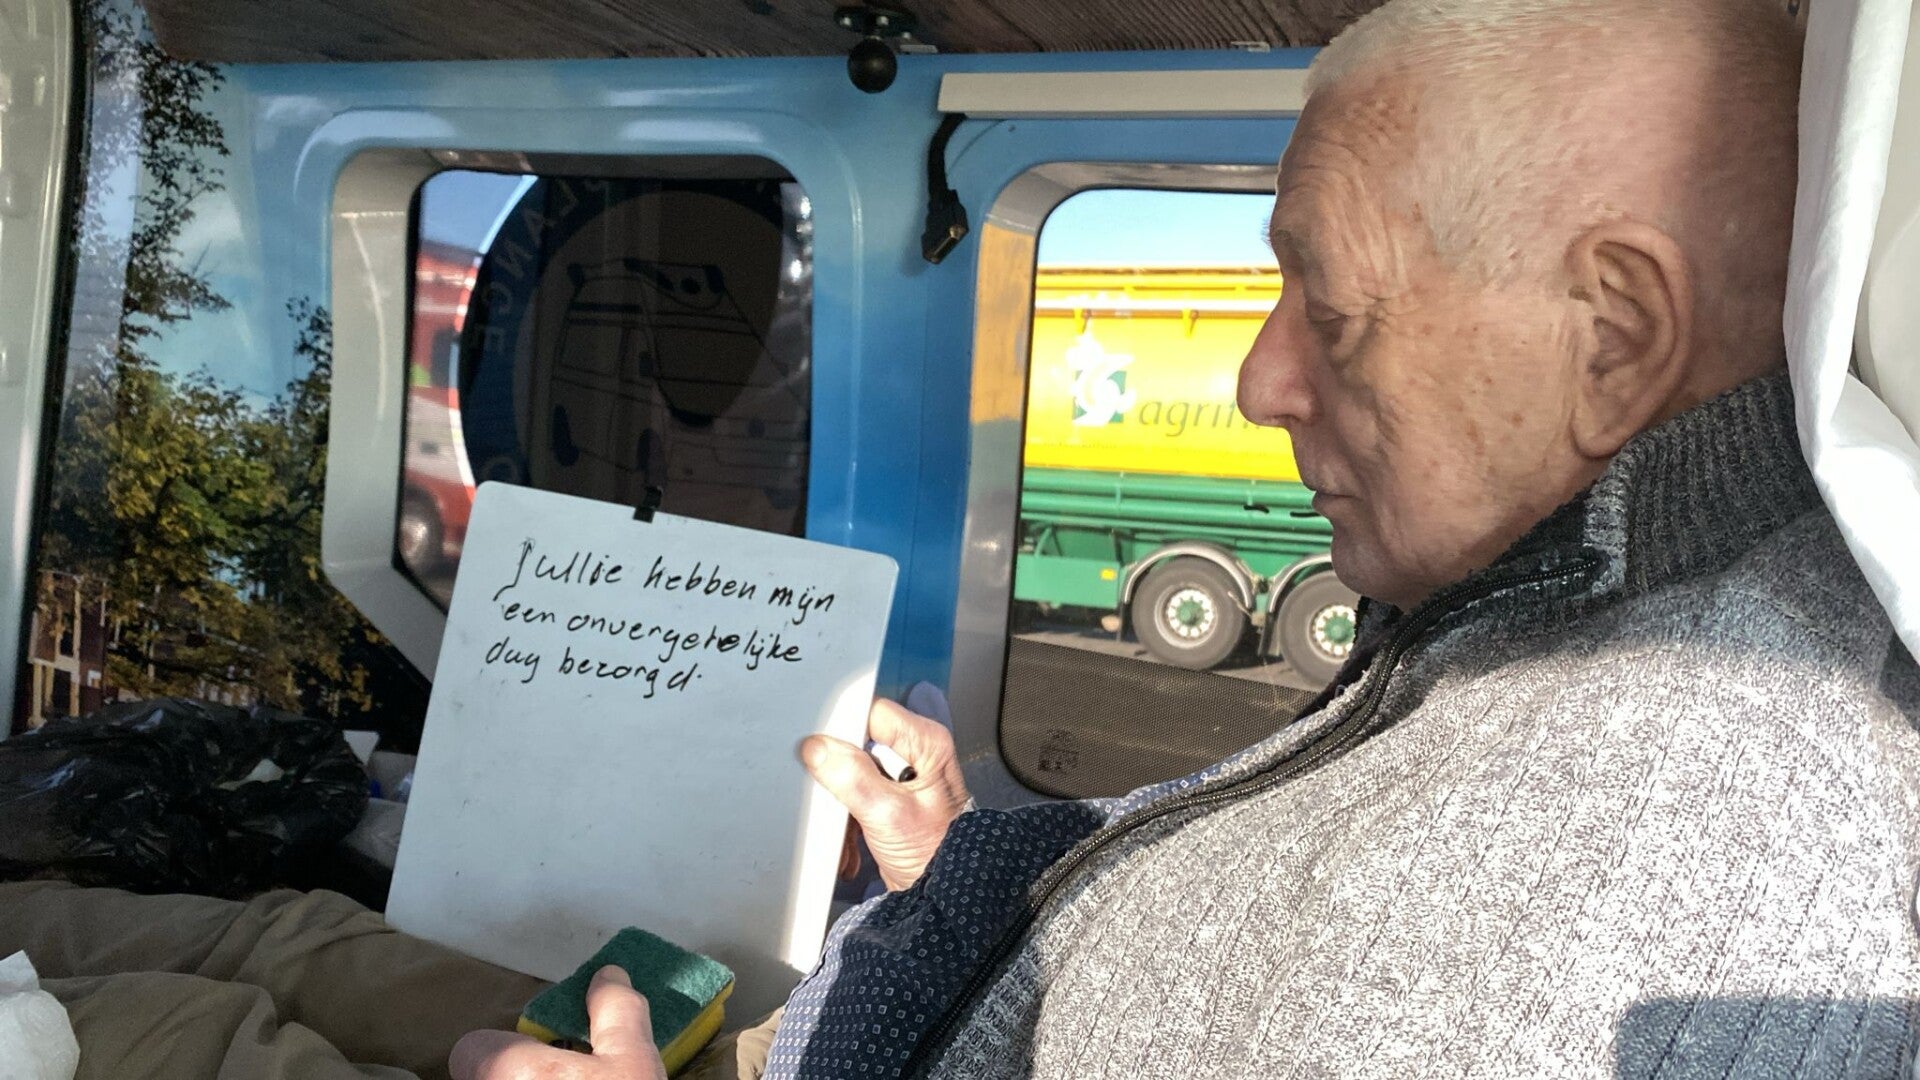 Jullie hebben mijn
een onvergetelijke
dag bezorgd.
agrifi
LANCE